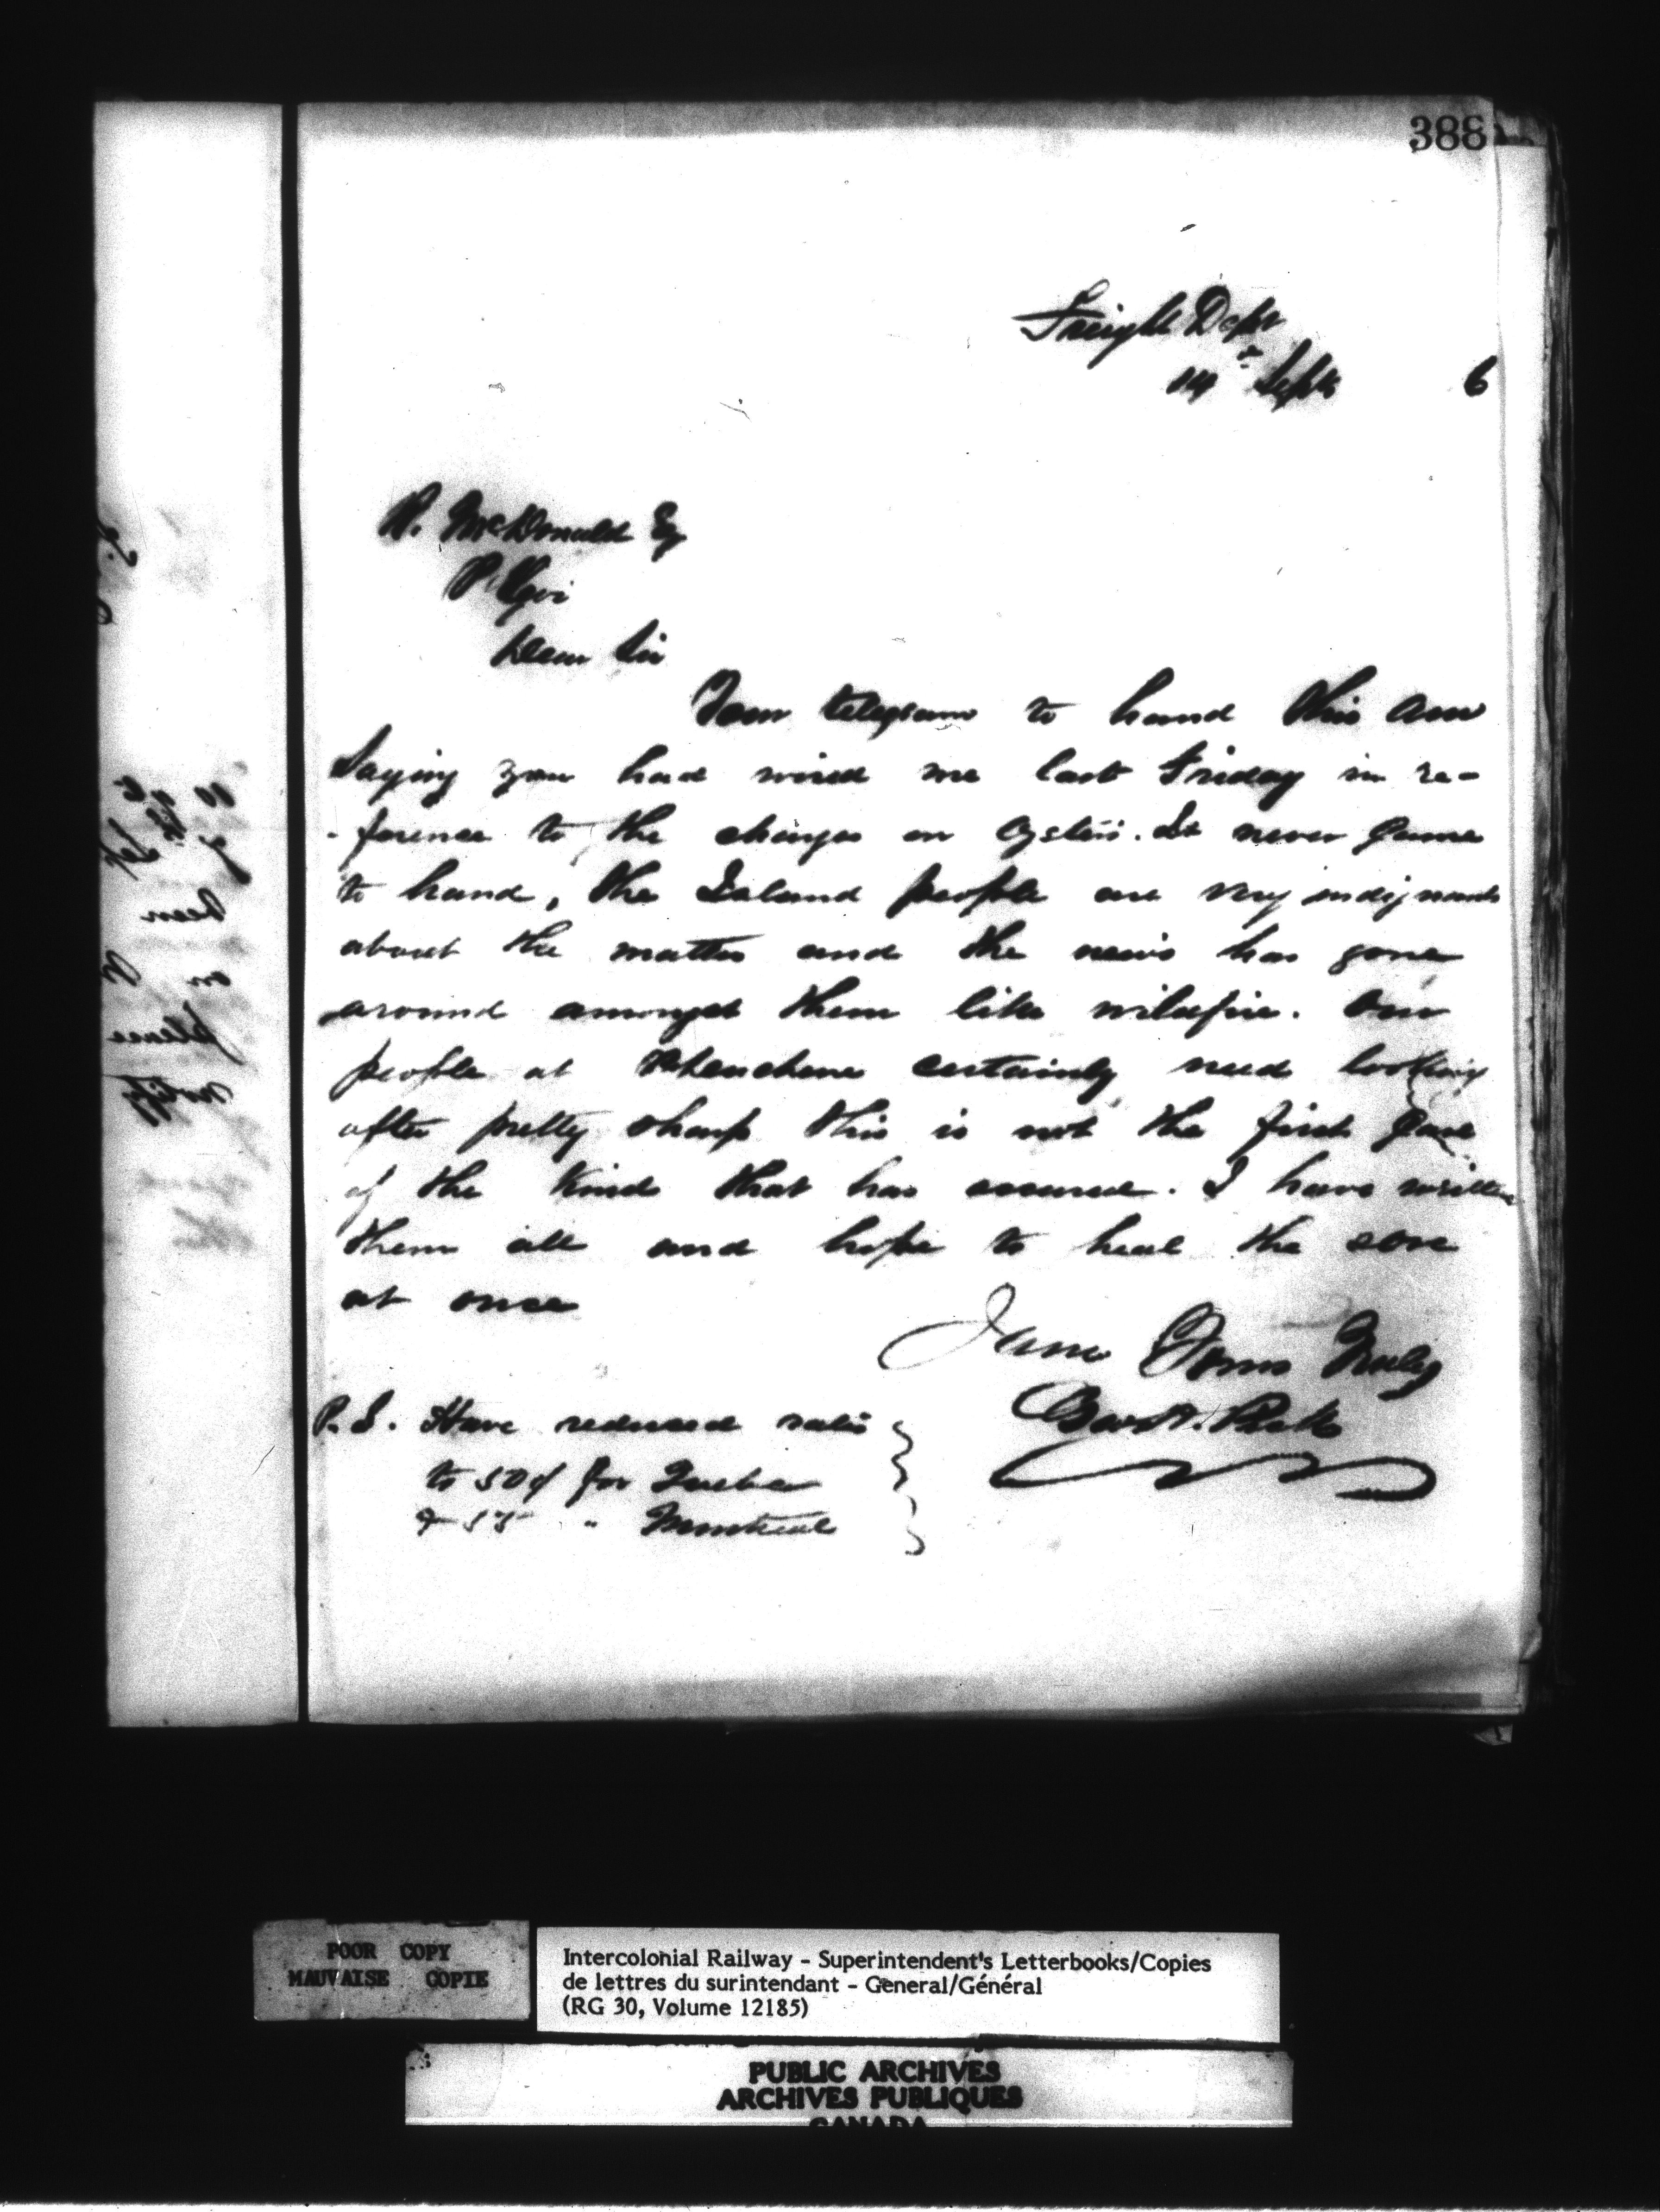 388
Freight Dept
14th Septr 6
R. McDonald Esq
Dear Sir
Your telegram to hand this am
Saying you had wired me last Friday in re-
-ference to the charges on Oysters. It never Came
to hand, the Island people are very indignant
about the matter and the news has gone
around amongst them like wildfire. Our
people at certainly need looking
after pretty sharp this is not the first Case
of the Kind that has occured. I have written
them all and hope to heal the sore
at once
I am Yours Truly
P.S. Have reduced rates
to 50¢ for Quebec
& 55 " Montreal
been
on
please
notify
POOR COPY
MAUVAISE COPIE
Intercolonial Railway - Superintendent's Letterbooks/Copies
de lettres du surintendant - General/Général
(RG 30, Volume 12185)
PUBLIC ARCHIVES
ARCHIVES PUBLIQUES
CANADA